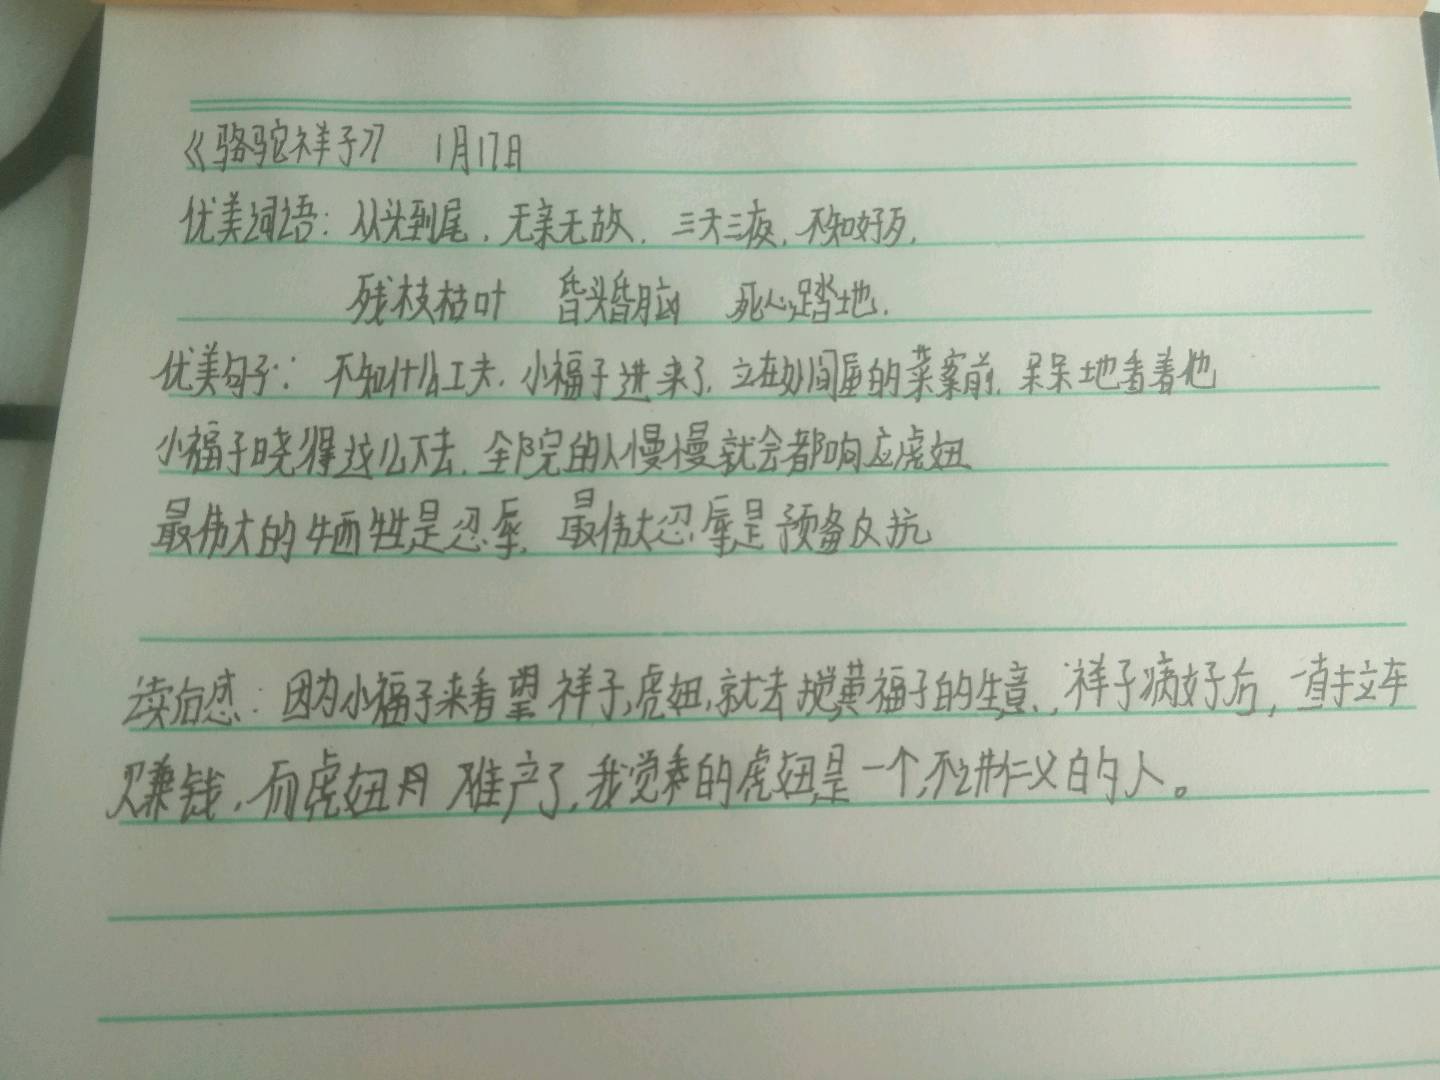 《骆驼祥子》 1月17日
优美词语：从头到尾，无亲无故，三天三夜，不知好歹，
残枝枯叶 昏头昏脑 死心踏地，
优美句子：不知什么工夫，小福子进来了，立在外间屋的菜案前，呆呆地看着他
小福子晓得这么下去，全院的人慢慢就会都响应虎妞
最伟大的牺牲是忍辱，最伟大忍辱是预备反抗
读后感：因为小福子来看望祥子，虎妞，就去搅黄福子的生意，祥子病好后，直拉车
赚钱，而虎妞 难产了，我觉 的虎妞是一个不讲仁义的人。